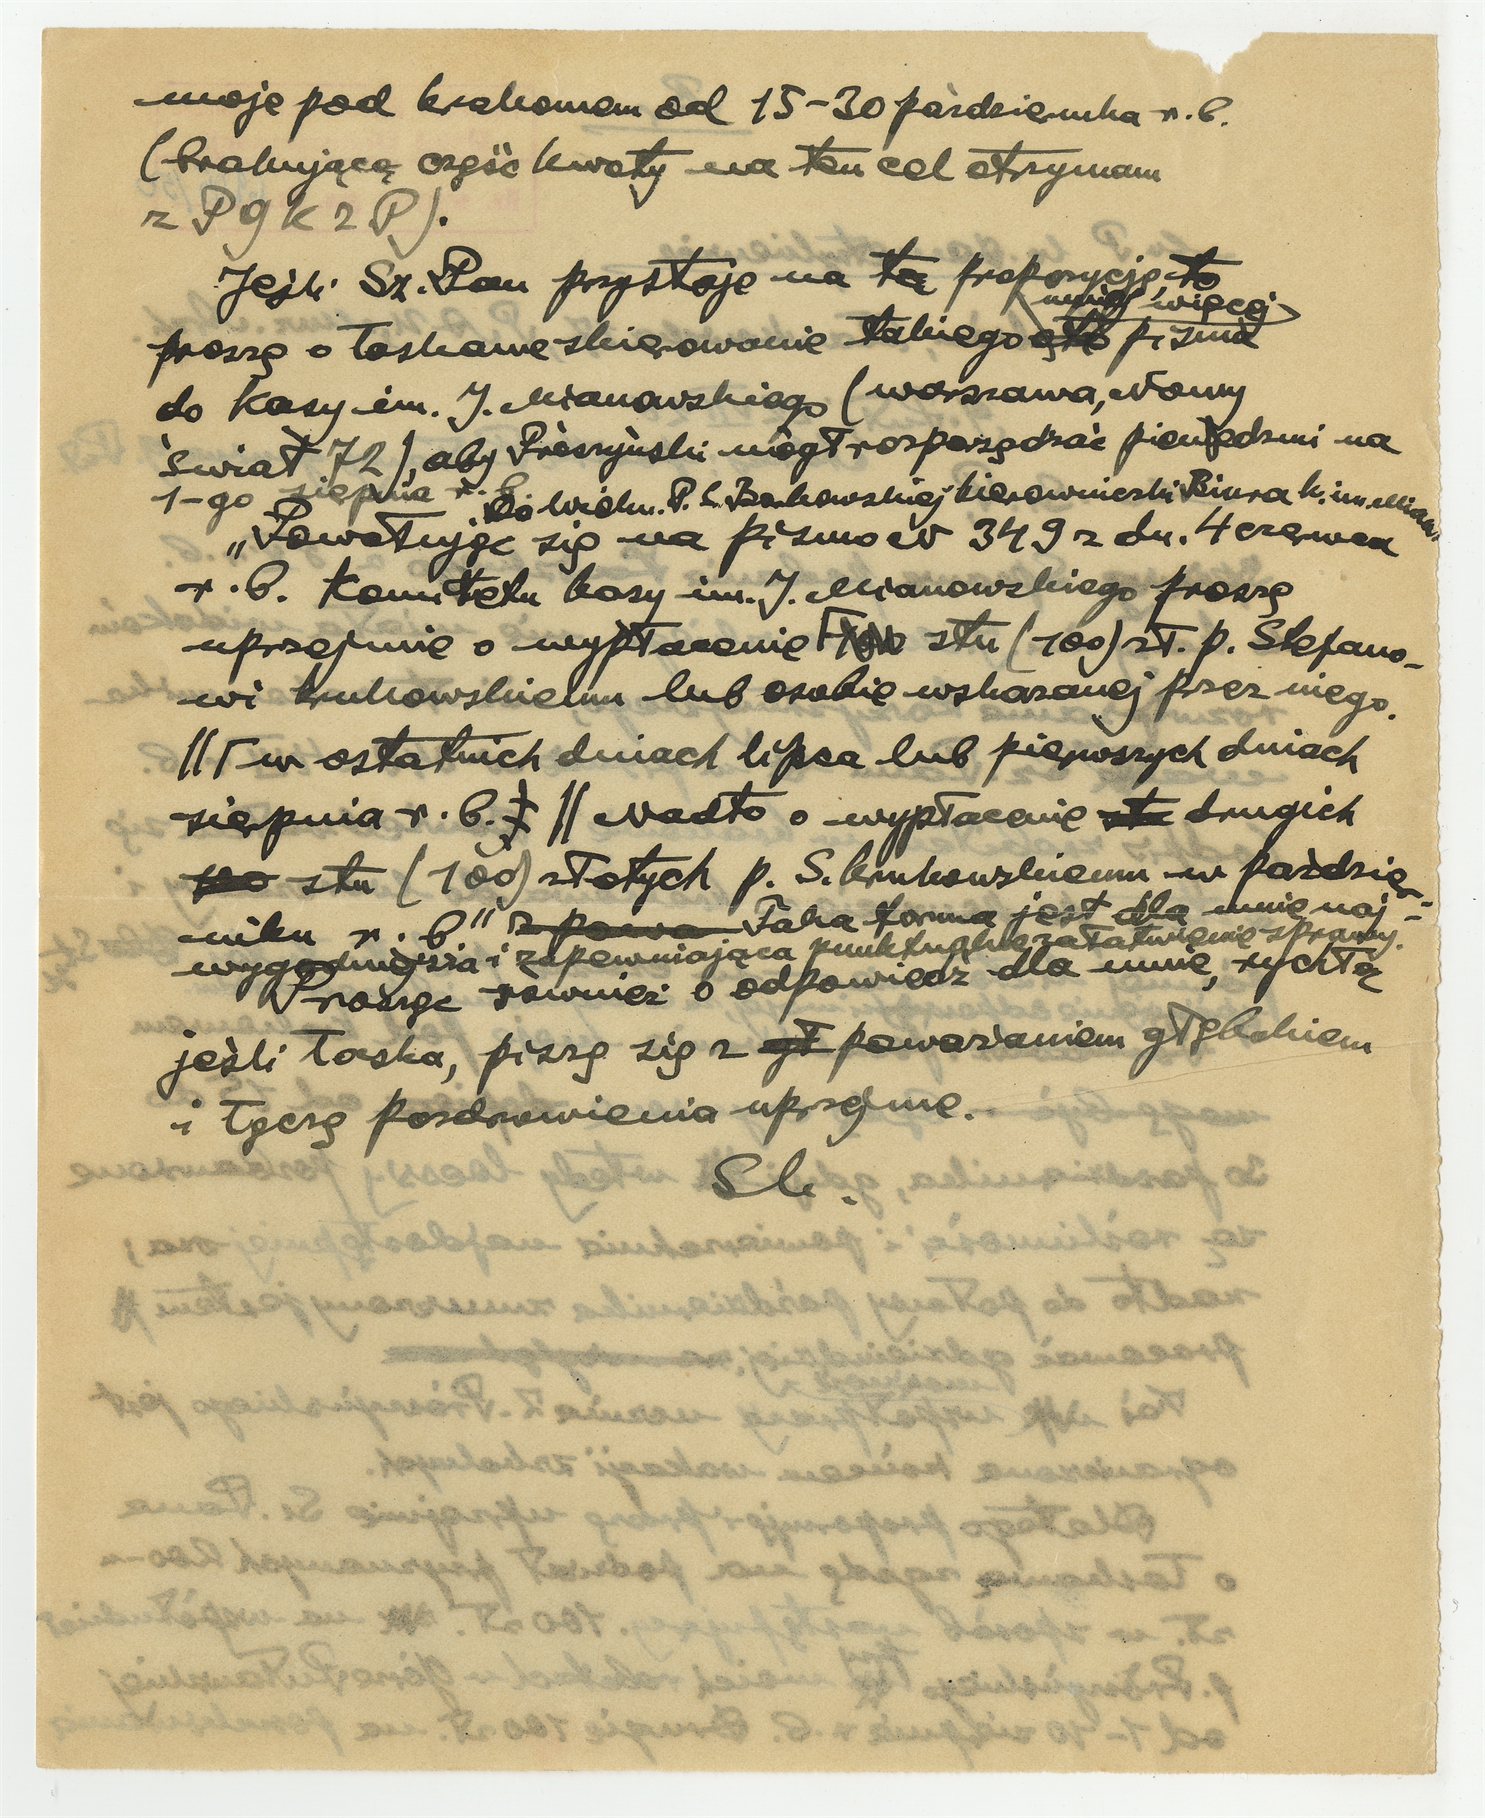 moje pod Krakowem od 15-30 października r.b.
(brakującą część kwoty na ten cel otrzymam
z P G K Z P).
Jeśli Sz. Pan przystaje na tą propozycję, to
mniej więcej
proszę o łaskawe skierowanie takiego oto pisma
do Kasy im. J. Mianowskiego (Warszawa, Nowy
Świat 72), aby Prószyński mógł rozporządzać pieniędzmi na
1-go sierpnia r.b.
Do Wielm. P. L. Bartkowskiej kierowniczki Biura k. im. Mian.
„Powołując się na pismo N 349 z dn. 4 czerwca
r.b. Komitetu kasy im. J. Mianowskiego proszę
uprzejmie o wypłacenie stu (100) zł. p. Stefano-
wi Krukowskiemu lub osobie wskazanej przez niego.
//Γ w ostatnich dniach lipca lub pierwszych dniach
sierpnia r.b. // Nadto o wypłacenie drugich
100 stu (100) złotych p. S. Krukowskiemu w paździer-
niku r.b" Taka forma jest dla mnie naj-
wygodniejsza i zapewniająca punktualne załatwienie sprawy.
Prosząc również o odpowiedź dla mnie, rychłą
jeśli łaska, piszę się z gł poważaniem głębokiem
i łączę pozdrowienia uprzejme.
SK.